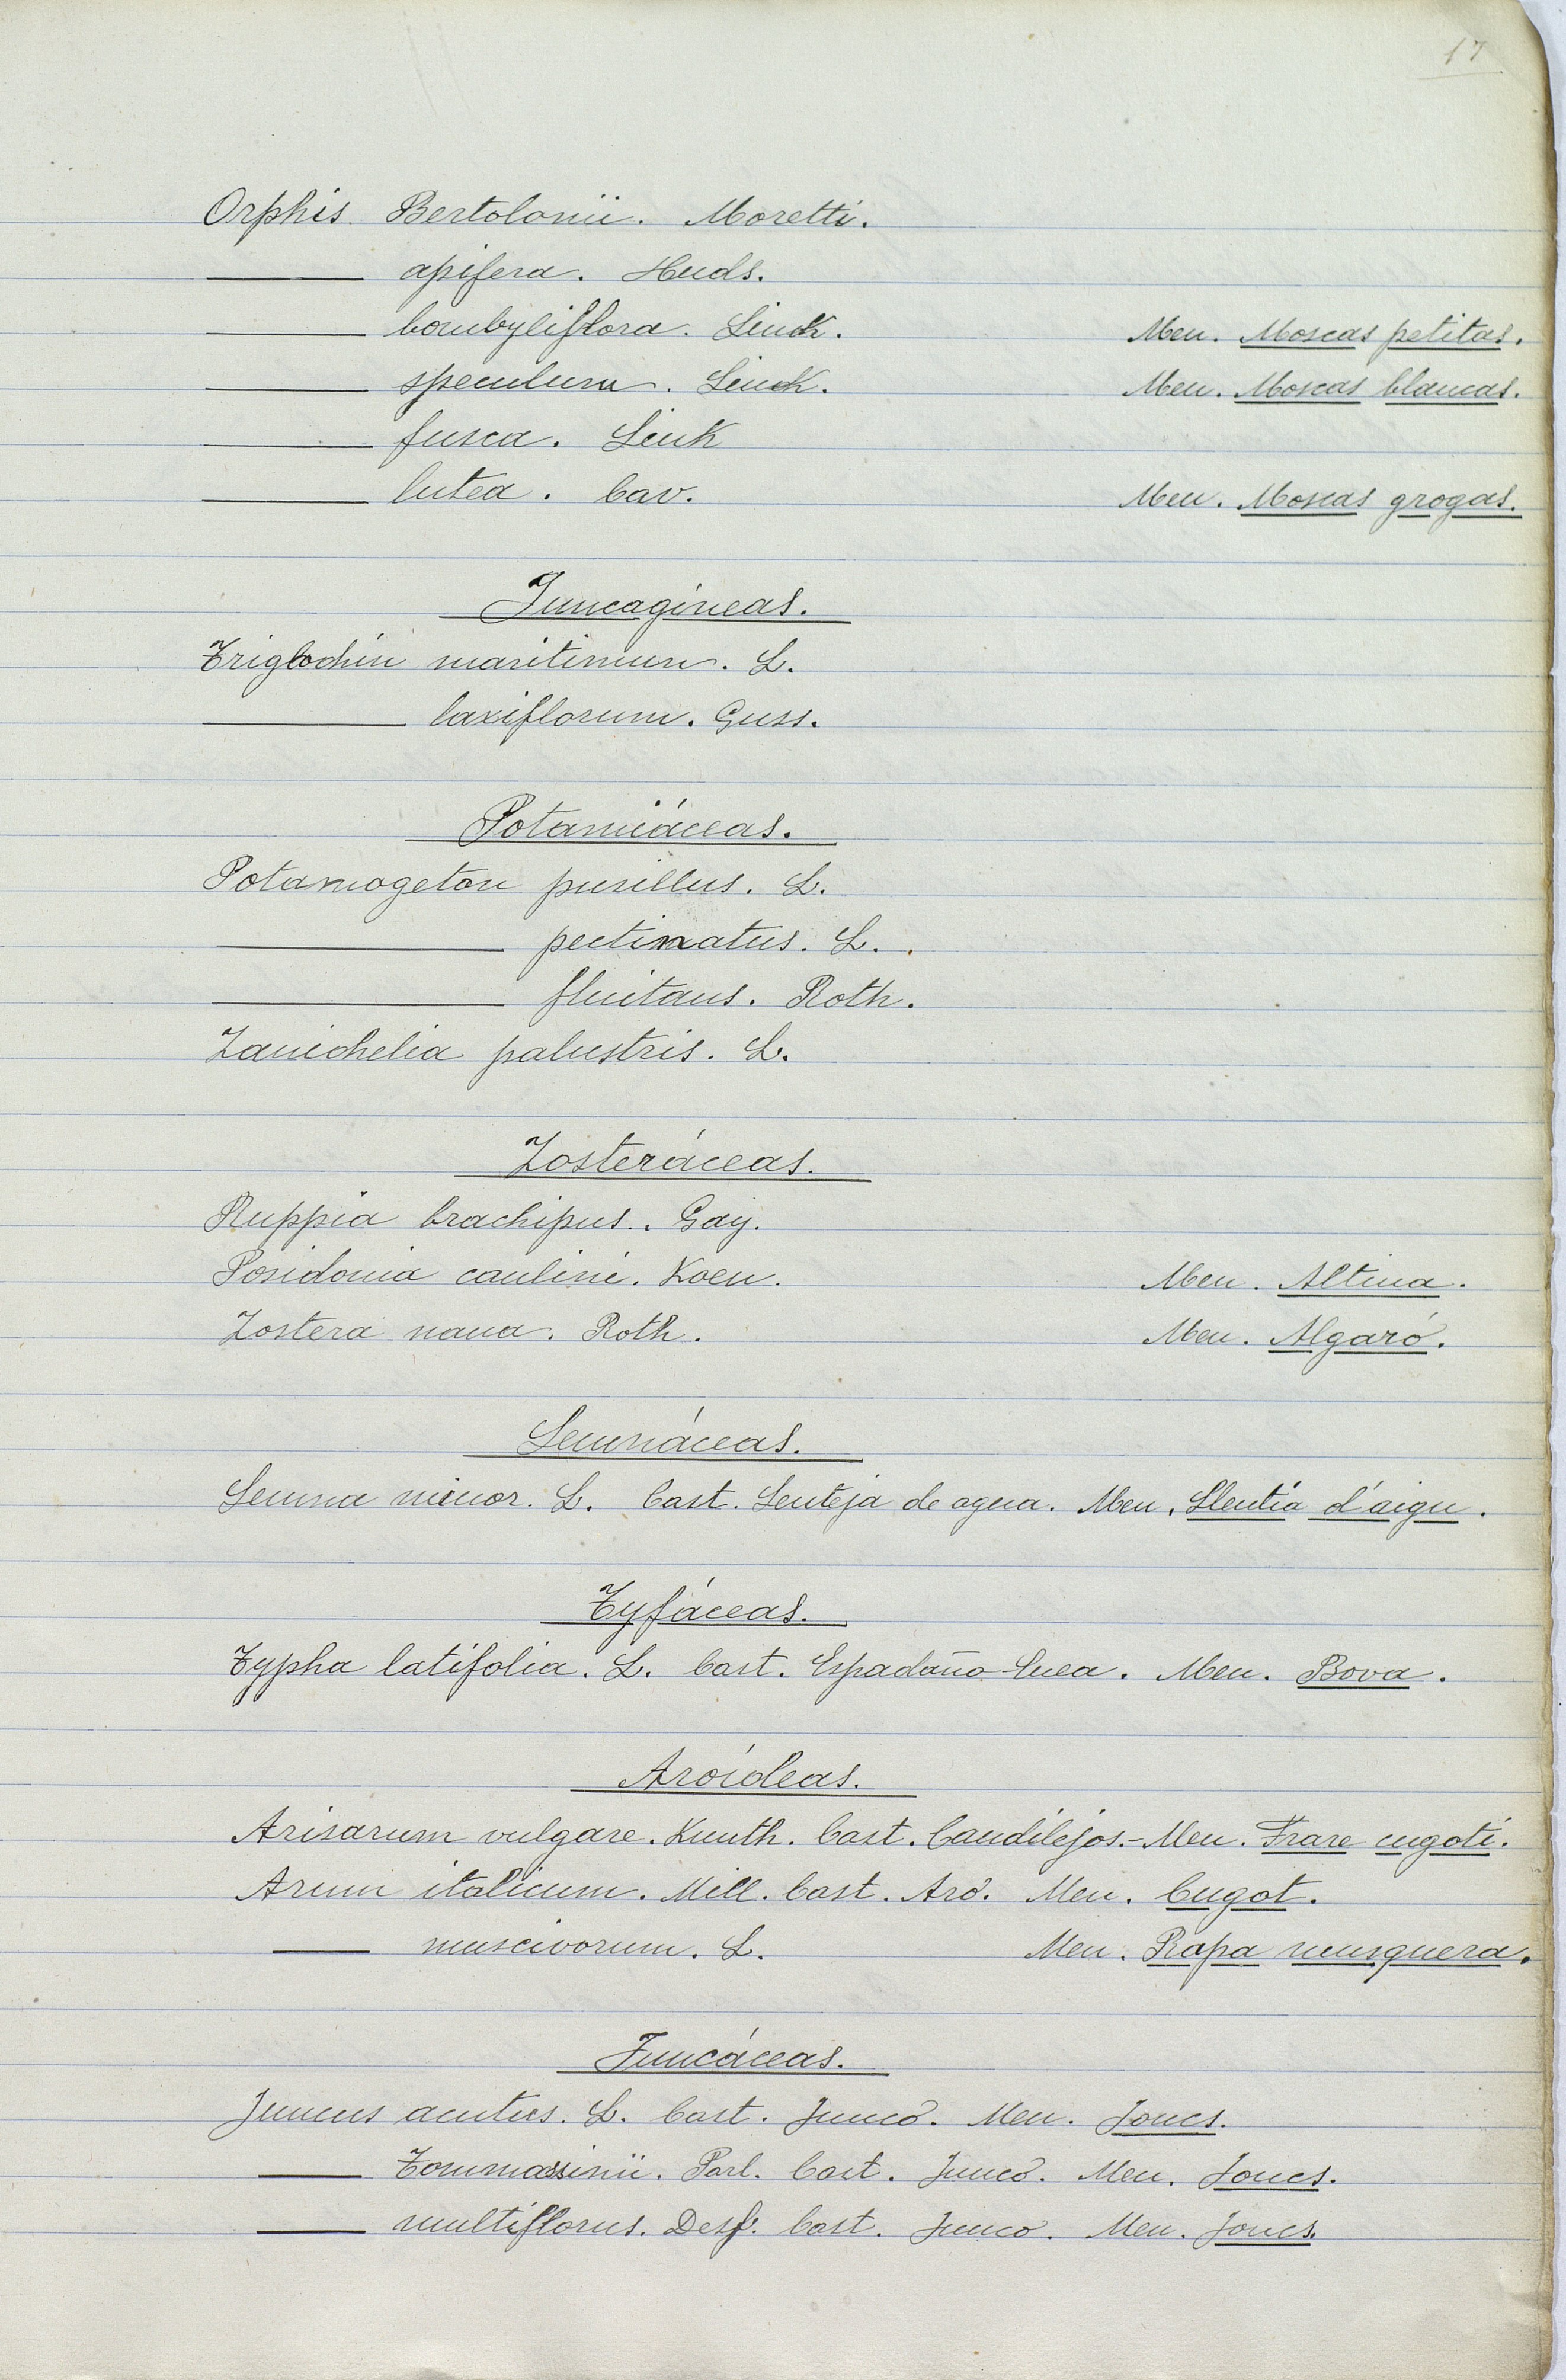 17
Orphis Bertolonii. Moretti.
——— apifera. Huds.
——— bombyliflora. Linck. Men. Moscas petitas.
——— speculum. Linck. Men. Moscas blancas.
——— fusca. Link
——— lutea. Cav. Men. Moscas grogas.
Juncagíneas.
Triglochin maritimum. L.
——— laxiflorum. Guss.
Potamiáceas.
Potamogeton pusillus. L.
——— pectinatus. L.
——— fluitans. Roth.
Zanichelia palustris. L.
Zosteráceas.
Ruppia brachipus. Gay.
Posidonia caulini. Koen. Men. Altina.
Zostera nana. Roth. Men. Algaró.
Lemnáceas.
Lemna minor. L. Cast. Lenteja de agua. Men. Llentía d'aigu.
Tyfáceas.
Typha latifolia. L. Cast. Espadaña-Enea. Men. Bova.
Aroídeas.
Arisarum vulgare. Kunth. Cast. Candilejos.- Men. Frare cugotí.
Arum italicum. Mill. Cast. Aro. Men. Cugot.
——— muscivorum. L. Men. Rapa musquera.
Juncáceas.
Juncus acutus. L. Cast. Junco. Men. Joncs.
——— Tommasinii. Parl. Cast. Junco. Men. Joncs.
——— multiflorus. Desf. Cast. Junco. Men. Joncs.